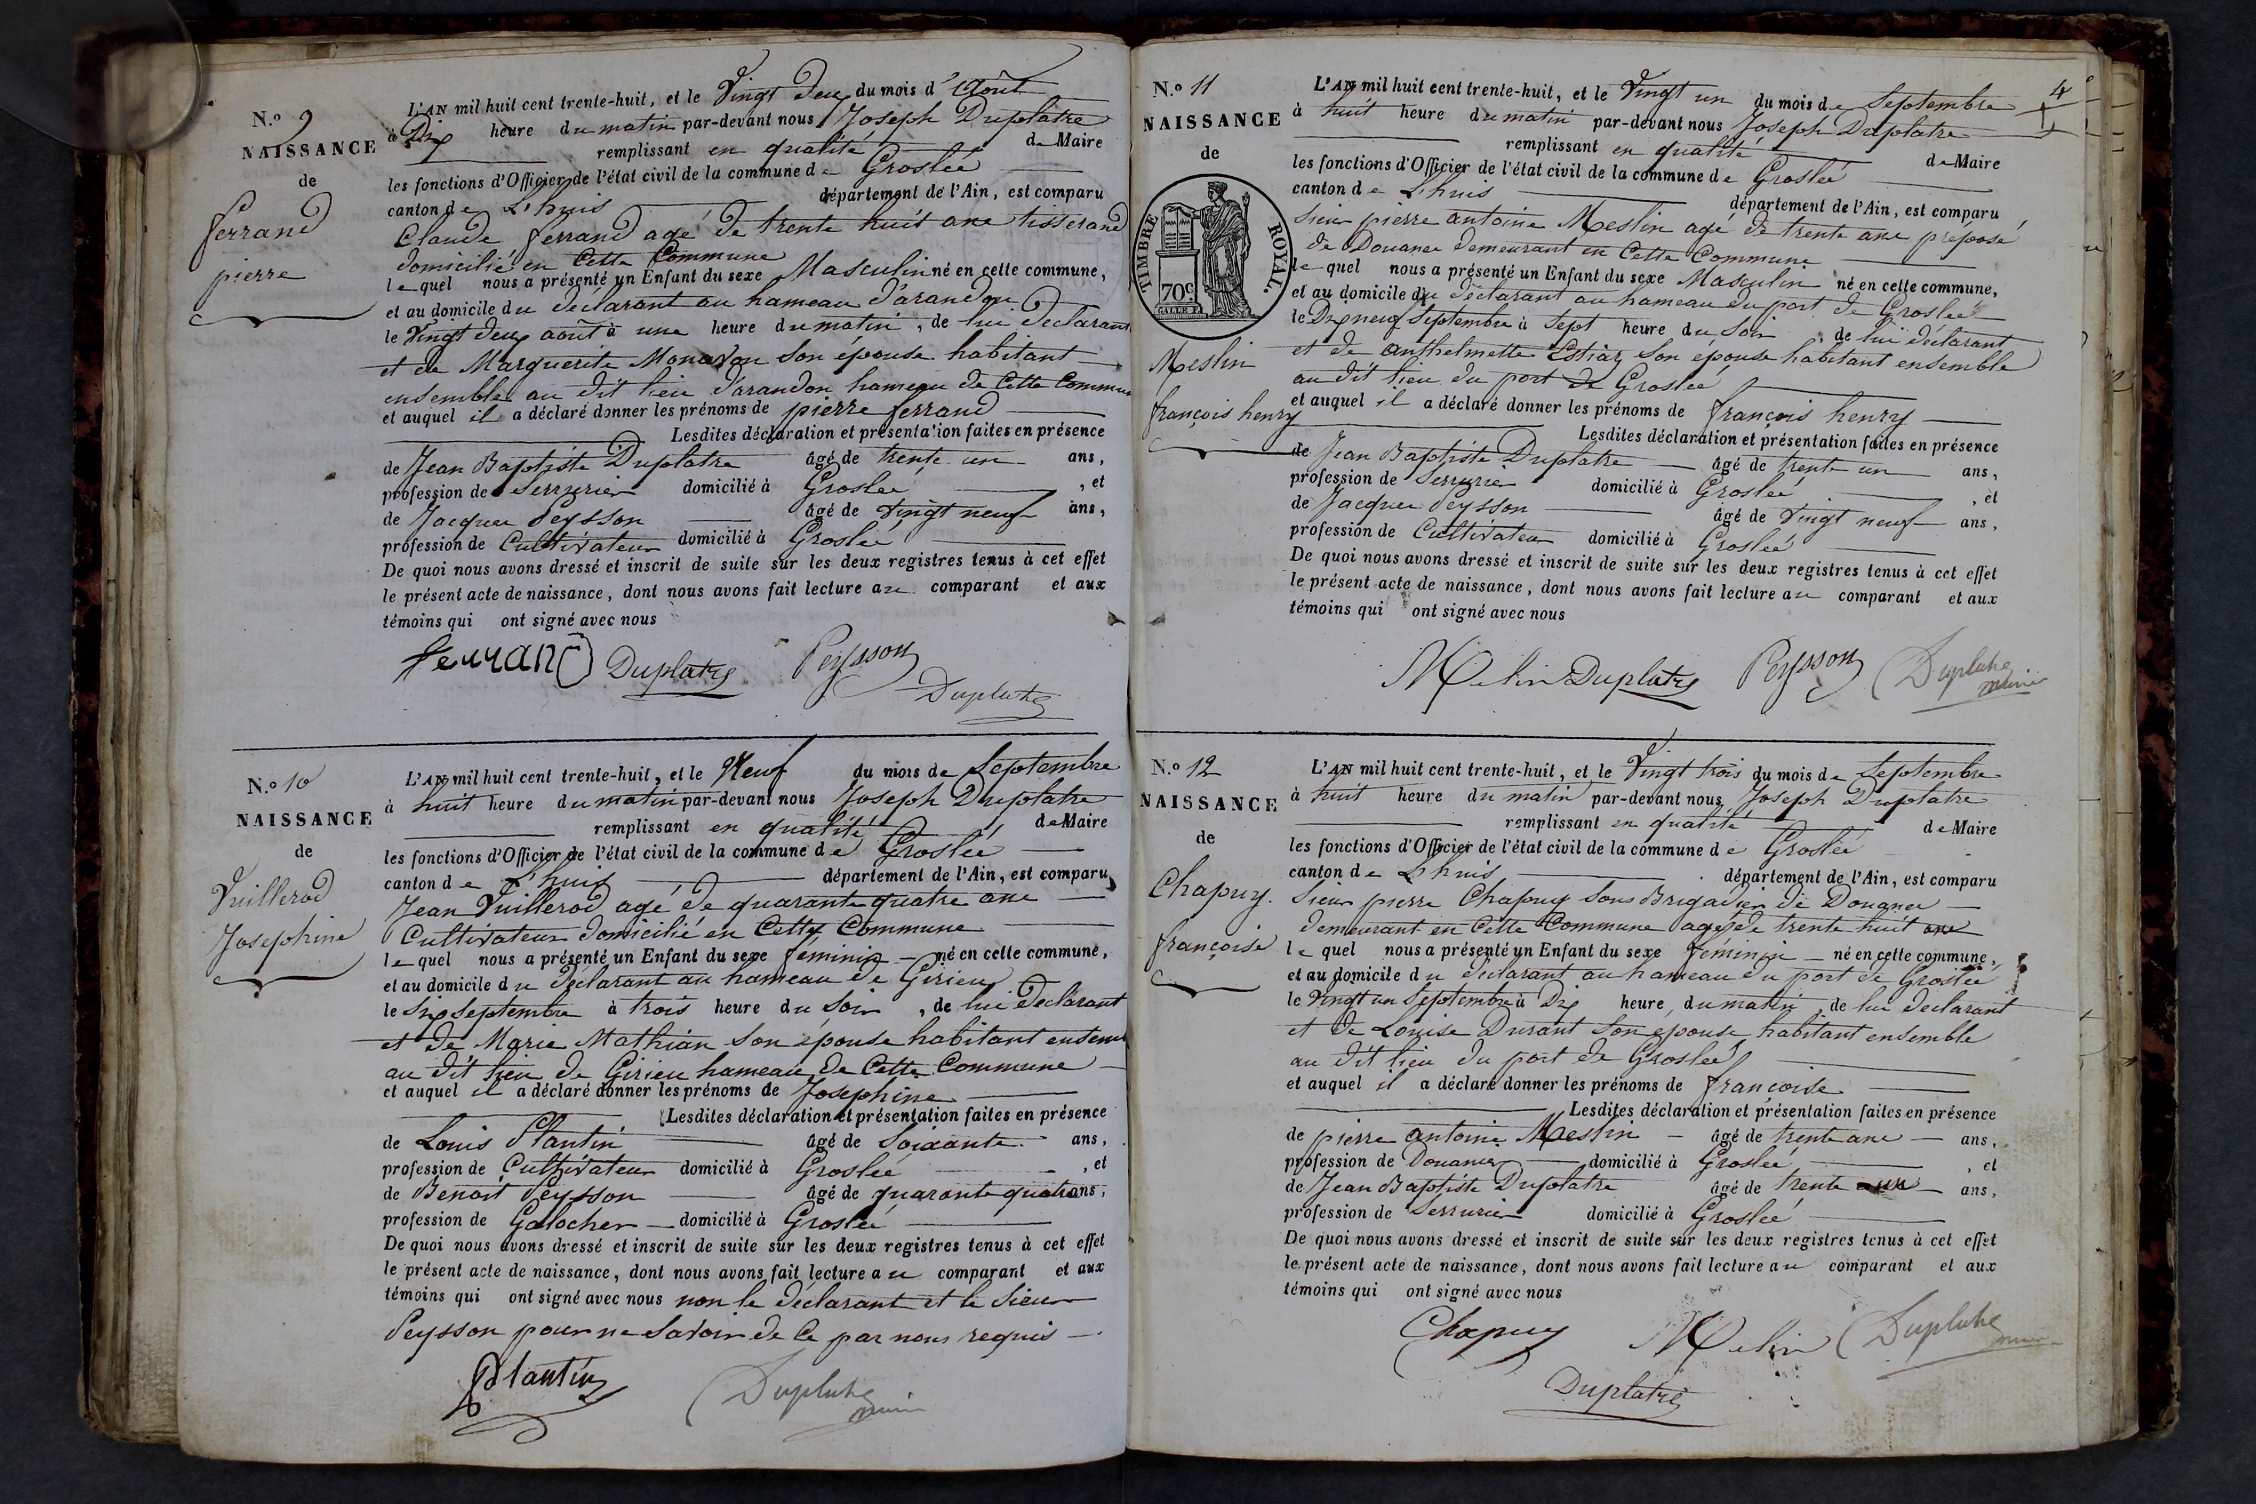 N.º 9
NAISSANCE
de
ferrand
pierre
L'AN mil huit cent trente-huit, et le Vingt deux du mois d'Août
à Dix heure du matin par-devant nous Joseph Duplatre
remplissant en qualité de Maire
les fonctions d'Officier de l'état civil de la commune de Groslée
canton de L'huis département de l'Ain, est comparu
Claude ferrand agé de trente huit ans tisserand
domicilié en Cette Commune
lequel nous a présenté un Enfant du sexe Masculin né en cette commune,
et au domicile du déclarant au hameau d'arandon
le Vingt deux août à une heure du matin, de lui déclarant
et de Marguerite Monavon son épouse habitant
ensemble au dit lieu d'arandon hameau de Cette Commune
et auquel il a déclaré donner les prénoms de pierre ferrand
Lesdites déclaration et présentation faites en présence
de Jean Baptiste Duplatre âgé de trente un ans,
profession de Serrurier domicilié à Groslée, et
de Jacques Peysson âgé de vingt neuf ans,
profession de Cultivateur domicilié à Groslée
De quoi nous avons dressé et inscrit de suite sur les deux registres tenus à cet effet
le présent acte de naissance, dont nous avons fait lecture au comparant et aux
témoins qui ont signé avec nous
ferrand Duplatre Peysson
Duplatre
N.º 10
NAISSANCE
de
Vuillerod
Josephine
L'AN mil huit cent trente-huit, et le Neuf du mois de Septembre
à huit heure du matin par-devant nous Joseph Duplatre
remplissant en qualité de Maire
les fonctions d'Officier de l'état civil de la commune de Groslée
canton de L'huis département de l'Ain, est comparu
Jean Vuillerod agé de quarante quatre ans
Cultivateur domicilié en Cette Commune
lequel nous a présenté un Enfant du sexe féminin né en cette commune,
et au domicile du déclarant au hameau de Girieu
le Six Septembre à trois heure du soir, de lui déclarant
et de Marie Mathian son épouse habitant ensemble
au dit lieu de Girieu hameau de Cette Commune
et auquel il a déclaré donner les prénoms de Josephine
Lesdites déclaration et présentation faites en présence
de Louis Plantin âgé de Soixante ans,
profession de Cultivateur domicilié à Groslée, et
de Benoit Peysson âgé de quarante quatre ans,
profession de Galocher domicilié à Groslée
De quoi nous avons dressé et inscrit de suite sur les deux registres tenus à cet effet
le présent acte de naissance, dont nous avons fait lecture au comparant et aux
témoins qui ont signé avec nous non le déclarant et le Sieur
Peysson pour ne Savoir de Ce par nous requis
Plantin Duplatre maire
4
N.º 11
NAISSANCE
de
TIMBRE ROYAL.
70 c.
Meslin
françois henry
L'AN mil huit cent trente-huit, et le Vingt un du mois de Septembre
à huit heure du matin par-devant nous Joseph Duplatre
remplissant en qualité de Maire
les fonctions d'Officier de l'état civil de la commune de Groslée
canton de L'huis département de l'Ain, est comparu
Sieur pierre antoine Meslin agé de trente ans préposé
de Douane demeurant en Cette Commune
lequel nous a présenté un Enfant du sexe Masculin né en cette commune,
et au domicile du déclarant au hameau du port de Groslée
le Dix neuf Septembre à Sept heure du Soir, de lui déclarant
et de anthelmette Estiaz son épouse habitant ensemble
au dit lieu du port de Groslée
et auquel il a déclaré donner les prénoms de françois henry
Lesdites déclaration et présentation faites en présence
de Jean Baptiste Duplatre âgé de trente un ans,
profession de Serrurier domicilié à Groslée, et
de Jacques Peysson âgé de vingt neuf ans,
profession de Cultivateur domicilié à Groslée
De quoi nous avons dressé et inscrit de suite sur les deux registres tenus à cet effet
le présent acte de naissance, dont nous avons fait lecture au comparant et aux
témoins qui ont signé avec nous
Melin Duplatre Peysson Duplatre maire
N.º 12
NAISSANCE
de
Chapuy.
françoise
L'AN mil huit cent trente-huit, et le Vingt trois du mois de Septembre
à huit heure du matin par-devant nous Joseph Duplatre
remplissant en qualité de Maire
les fonctions d'Officier de l'état civil de la commune de Groslée
canton de L'huis département de l'Ain, est comparu
Sieur pierre Chapuy sous Brigadier de Douanes
demeurant en Cette Commune agé de trente huit ans
lequel nous a présenté un Enfant du sexe féminin né en cette commune,
et au domicile du déclarant au hameau du port de Groslée
le Vingt un Septembre à Dix heure du matin, de lui déclarant
et de Louise Durant son épouse habitant ensemble
au dit lieu du port de Groslée
et auquel il a déclaré donner les prénoms de françoise
Lesdites déclaration et présentation faites en présence
de pierre antoine Meslin âgé de trente ans ans,
profession de Douanier domicilié à Groslée, et
de Jean Baptiste Duplatre âgé de trente ans,
profession de Serrurier domicilié à Groslée
De quoi nous avons dressé et inscrit de suite sur les deux registres tenus à cet effet
le présent acte de naissance, dont nous avons fait lecture au comparant et aux
témoins qui ont signé avec nous
Chapuy Melin Duplatre maire
Duplatre